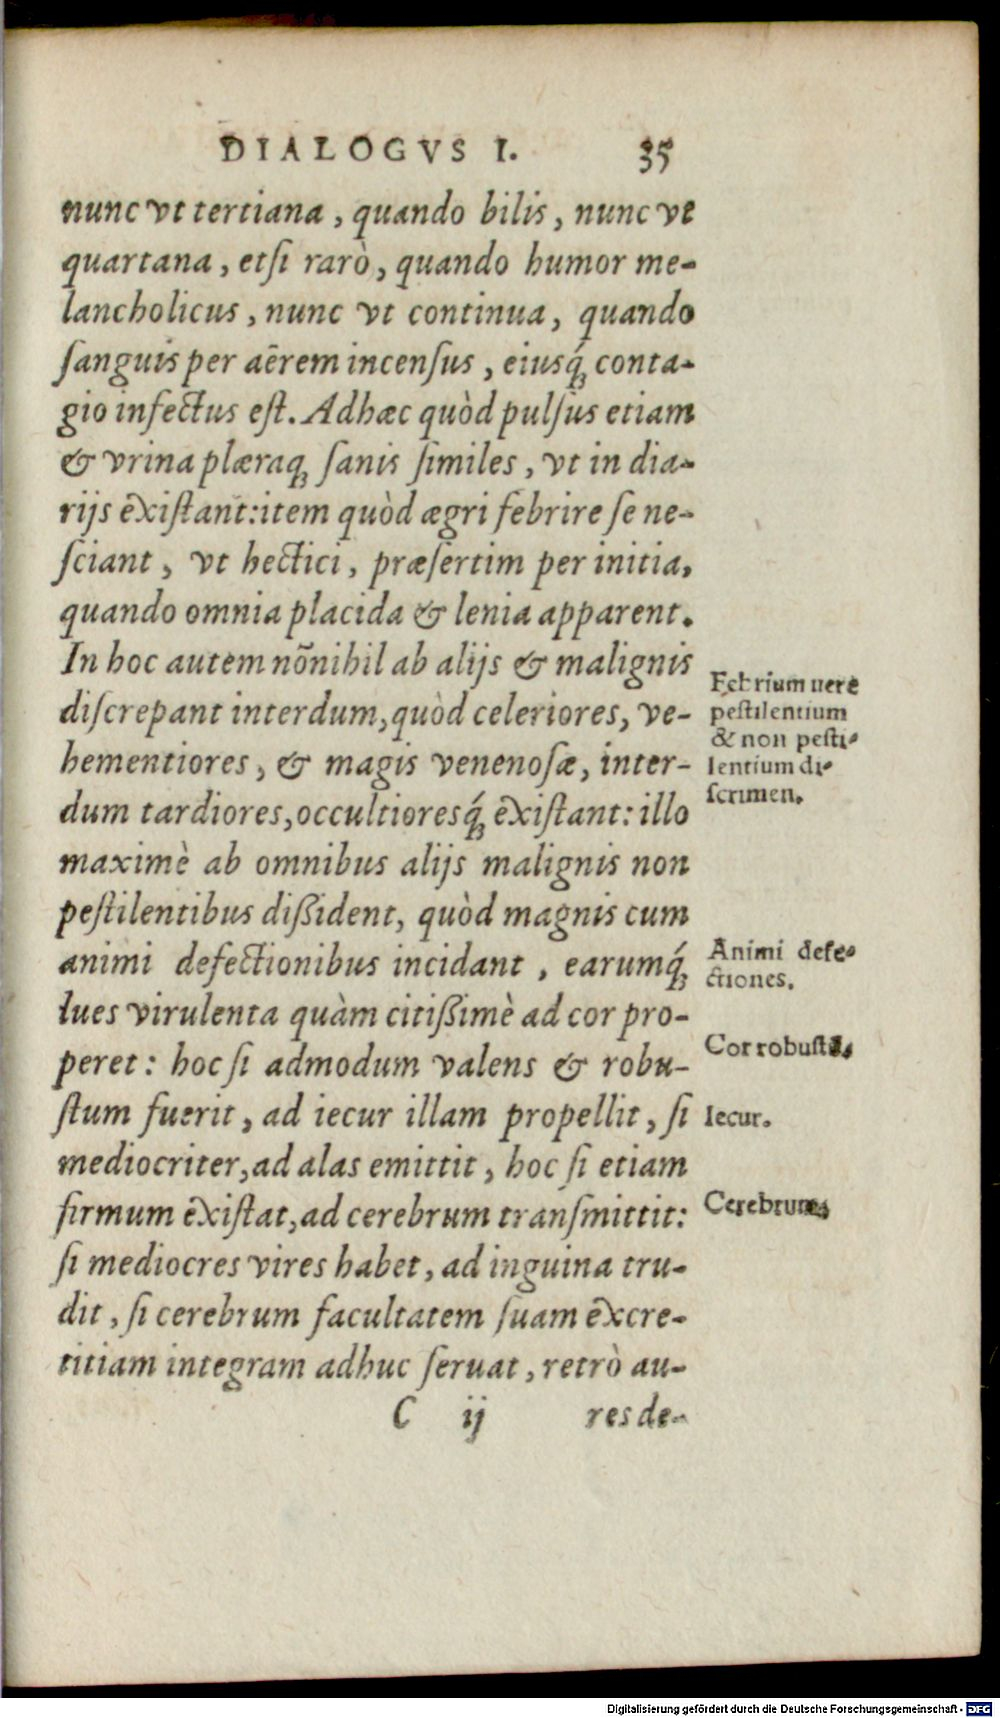 DIALOGVS I. 35
nunc vt tertiana, quando bilis, nunc vt
quartana, etſi rarò, quando humor me-
lancholicus, nunc vt continua, quando
ſanguis per aërem incenſus, eiusq́ꝫ conta-
gio infectus eſt. Adhæc quòd pulſus etiam
& vrina plæraqꝫ ſanis ſimiles, vt in dia-
rijs exiſtant: item quòd ægri febrire ſe ne-
ſciant, vt hectici, præſertim per initia,
quando omnia placida & lenia apparent.
In hoc autem nōnihil ab alijs & malignis
diſcrepant interdum, quòd celeriores, ve-
hementiores, & magis venenoſæ, inter-
dum tardiores, occultioresq́ꝫ exiſtant: illo
maximè ab omnibus alijs malignis non
peſtilentibus dißident, quòd magnis cum
animi defectionibus incidant, earumq́ꝫ
lues virulenta quàm citißimè ad cor pro-
peret: hoc ſi admodum valens & robu-
ſtum fuerit, ad iecur illam propellit, ſi
mediocriter, ad alas emittit, hoc ſi etiam
firmum exiſtat, ad cerebrum tranſmittit:
ſi mediocres vires habet, ad inguina tru-
dit, ſi cerebrum facultatem ſuam excre-
titiam integram adhuc ſeruat, retrò au-
C ij res de-
Febrium uere
peſtilentium
& non peſti-
lentium di-
ſcrimen.
Animi defe-
ctiones.
Cor robuſtū.
Iecur.
Cerebrum.
Digitalisierung gefördert durch die Deutsche Forschungsgemeinschaft - DFG